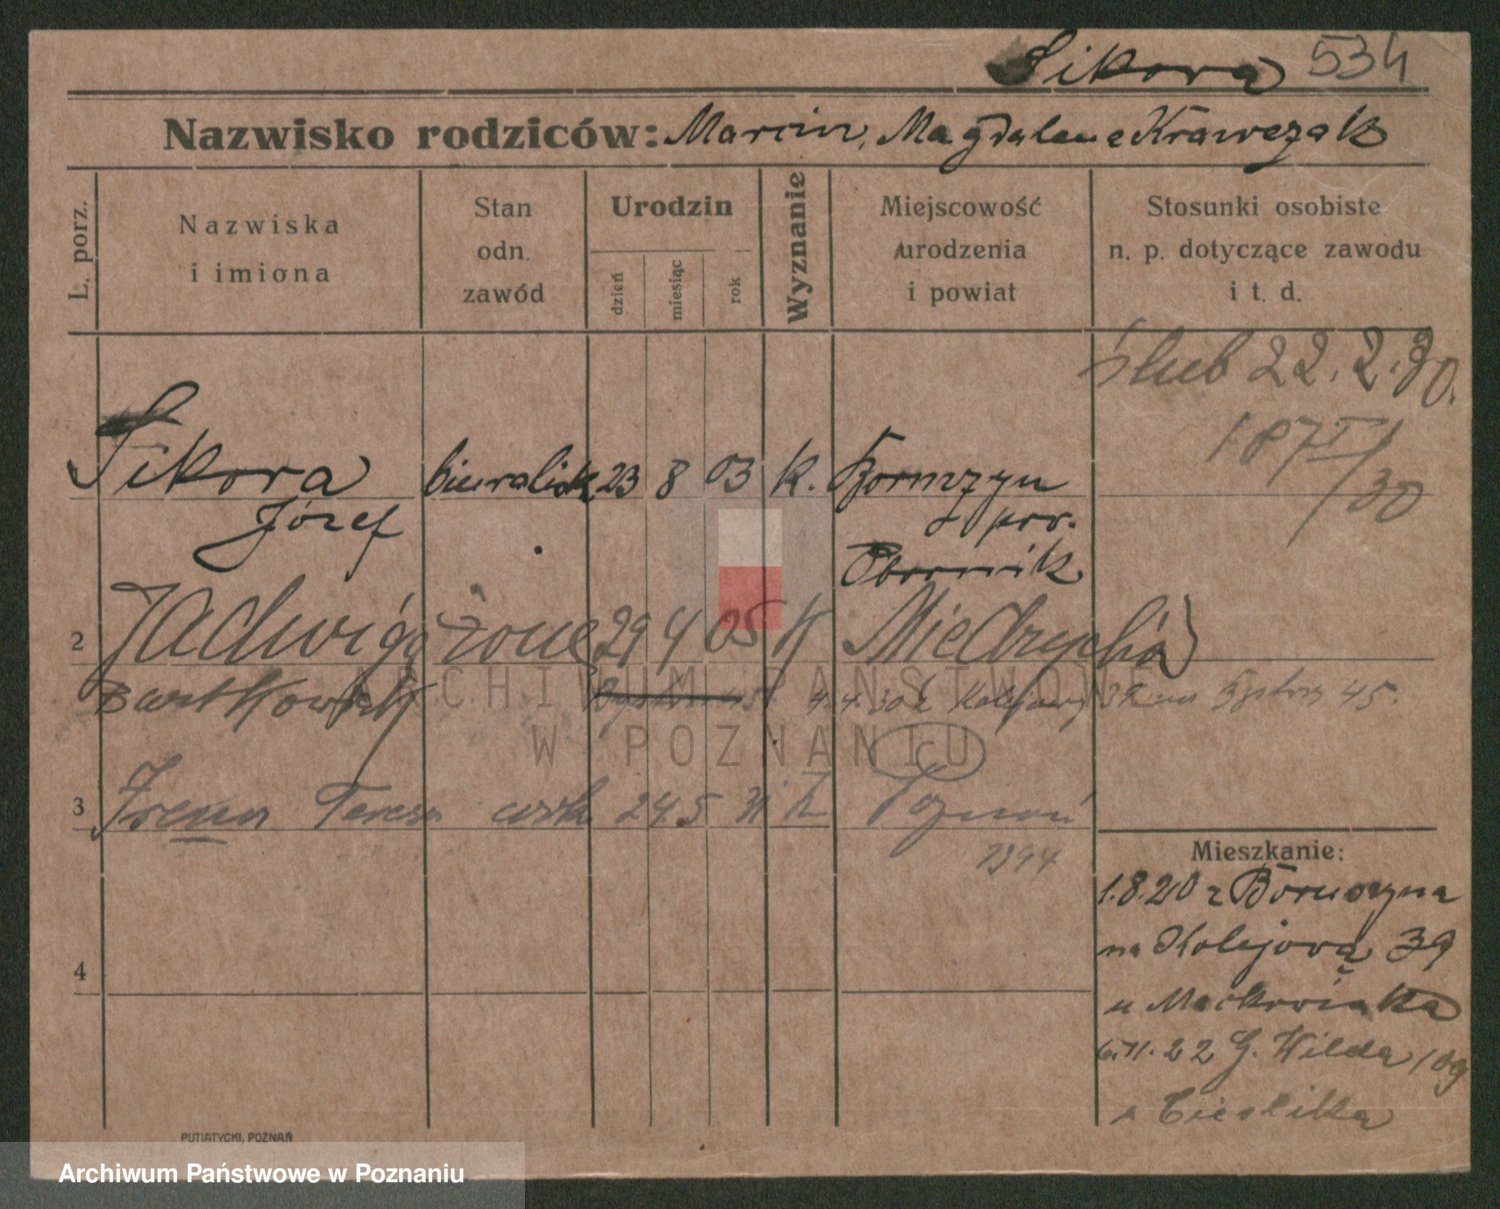 Sikora 534
Nazwisko rodziców: Marcin, Magdalena Krawczak
L. porz.
Nazwiska i imiona
Stan odn. zawód
Urodzin
dzień
miesiąc
rok
Wyznanie
Miejscowość urodzenia i powiat
Stosunki osobiste n. p. dotyczące zawodu i t. d.
ślub 22.2.30.
Sikora biuralistk 23 8 03 k.
Józef
pow.
Obornik
2 Jadwiga żona 29 4 05 k Miedzychód
4.4.30 z Kolejowej 39 na 45.
ARCHIWUM PAŃSTWOWE
W POZNANIU
C
3 Irena Teresa córk 24 5 31 k Poznań
1394
Mieszkanie:
1.8.20 z Boruszyna
na Kolejową 39
u Maćkowiaka
4
6.11.22 G. Wilda 109
u Cieślika
PUTIATYCKI, POZNAŃ
Archiwum Państwowe w Poznaniu